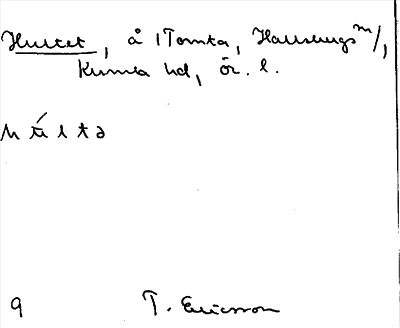 Hultet, å 1 Tomta, Hallsbergs m/,
Kumla hd, ör. l.
hú̶ltə
9 T. Ericsson